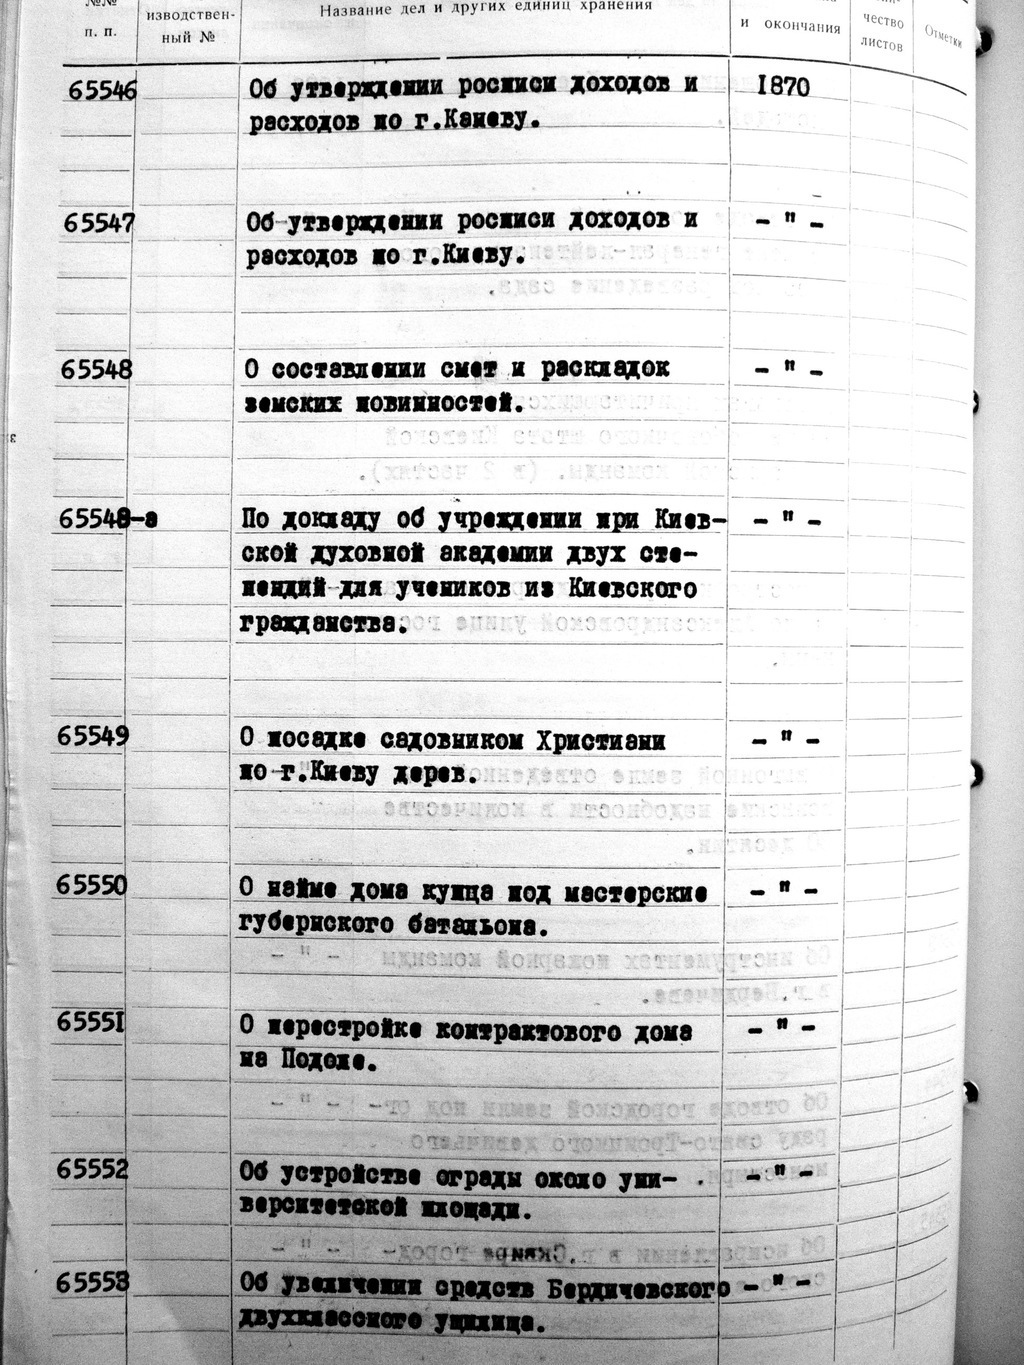 №№
п. п.
изводствен-
ный №
Название дел и других единиц хранения
и окончания
чество
листов
Отметки
65546 Об утверждении росписи доходов и 1870
расходов по г.Каневу.
65547 Об утверждении росписи доходов и – " –
расходов по г.Киеву.
65548 О составлении смет и раскладок – " –
земских повинностей.
65548-а По докладу об учреждении при Киев- – " –
ской духовной академии двух сти-
пендий для учеников из Киевского
гражданства.
65549 О посадке садовником Христиани – " –
по г.Киеву дерев.
65550 О найме дома купца под мастерские – " –
губернского батальона.
65551 О перестройке контрактового дома – " –
на Подоле.
65552 Об устройстве ограды около уни- – " –
верситетской площади.
65553 Об увеличении средств Бердичевского – " –
двухклассного училища.